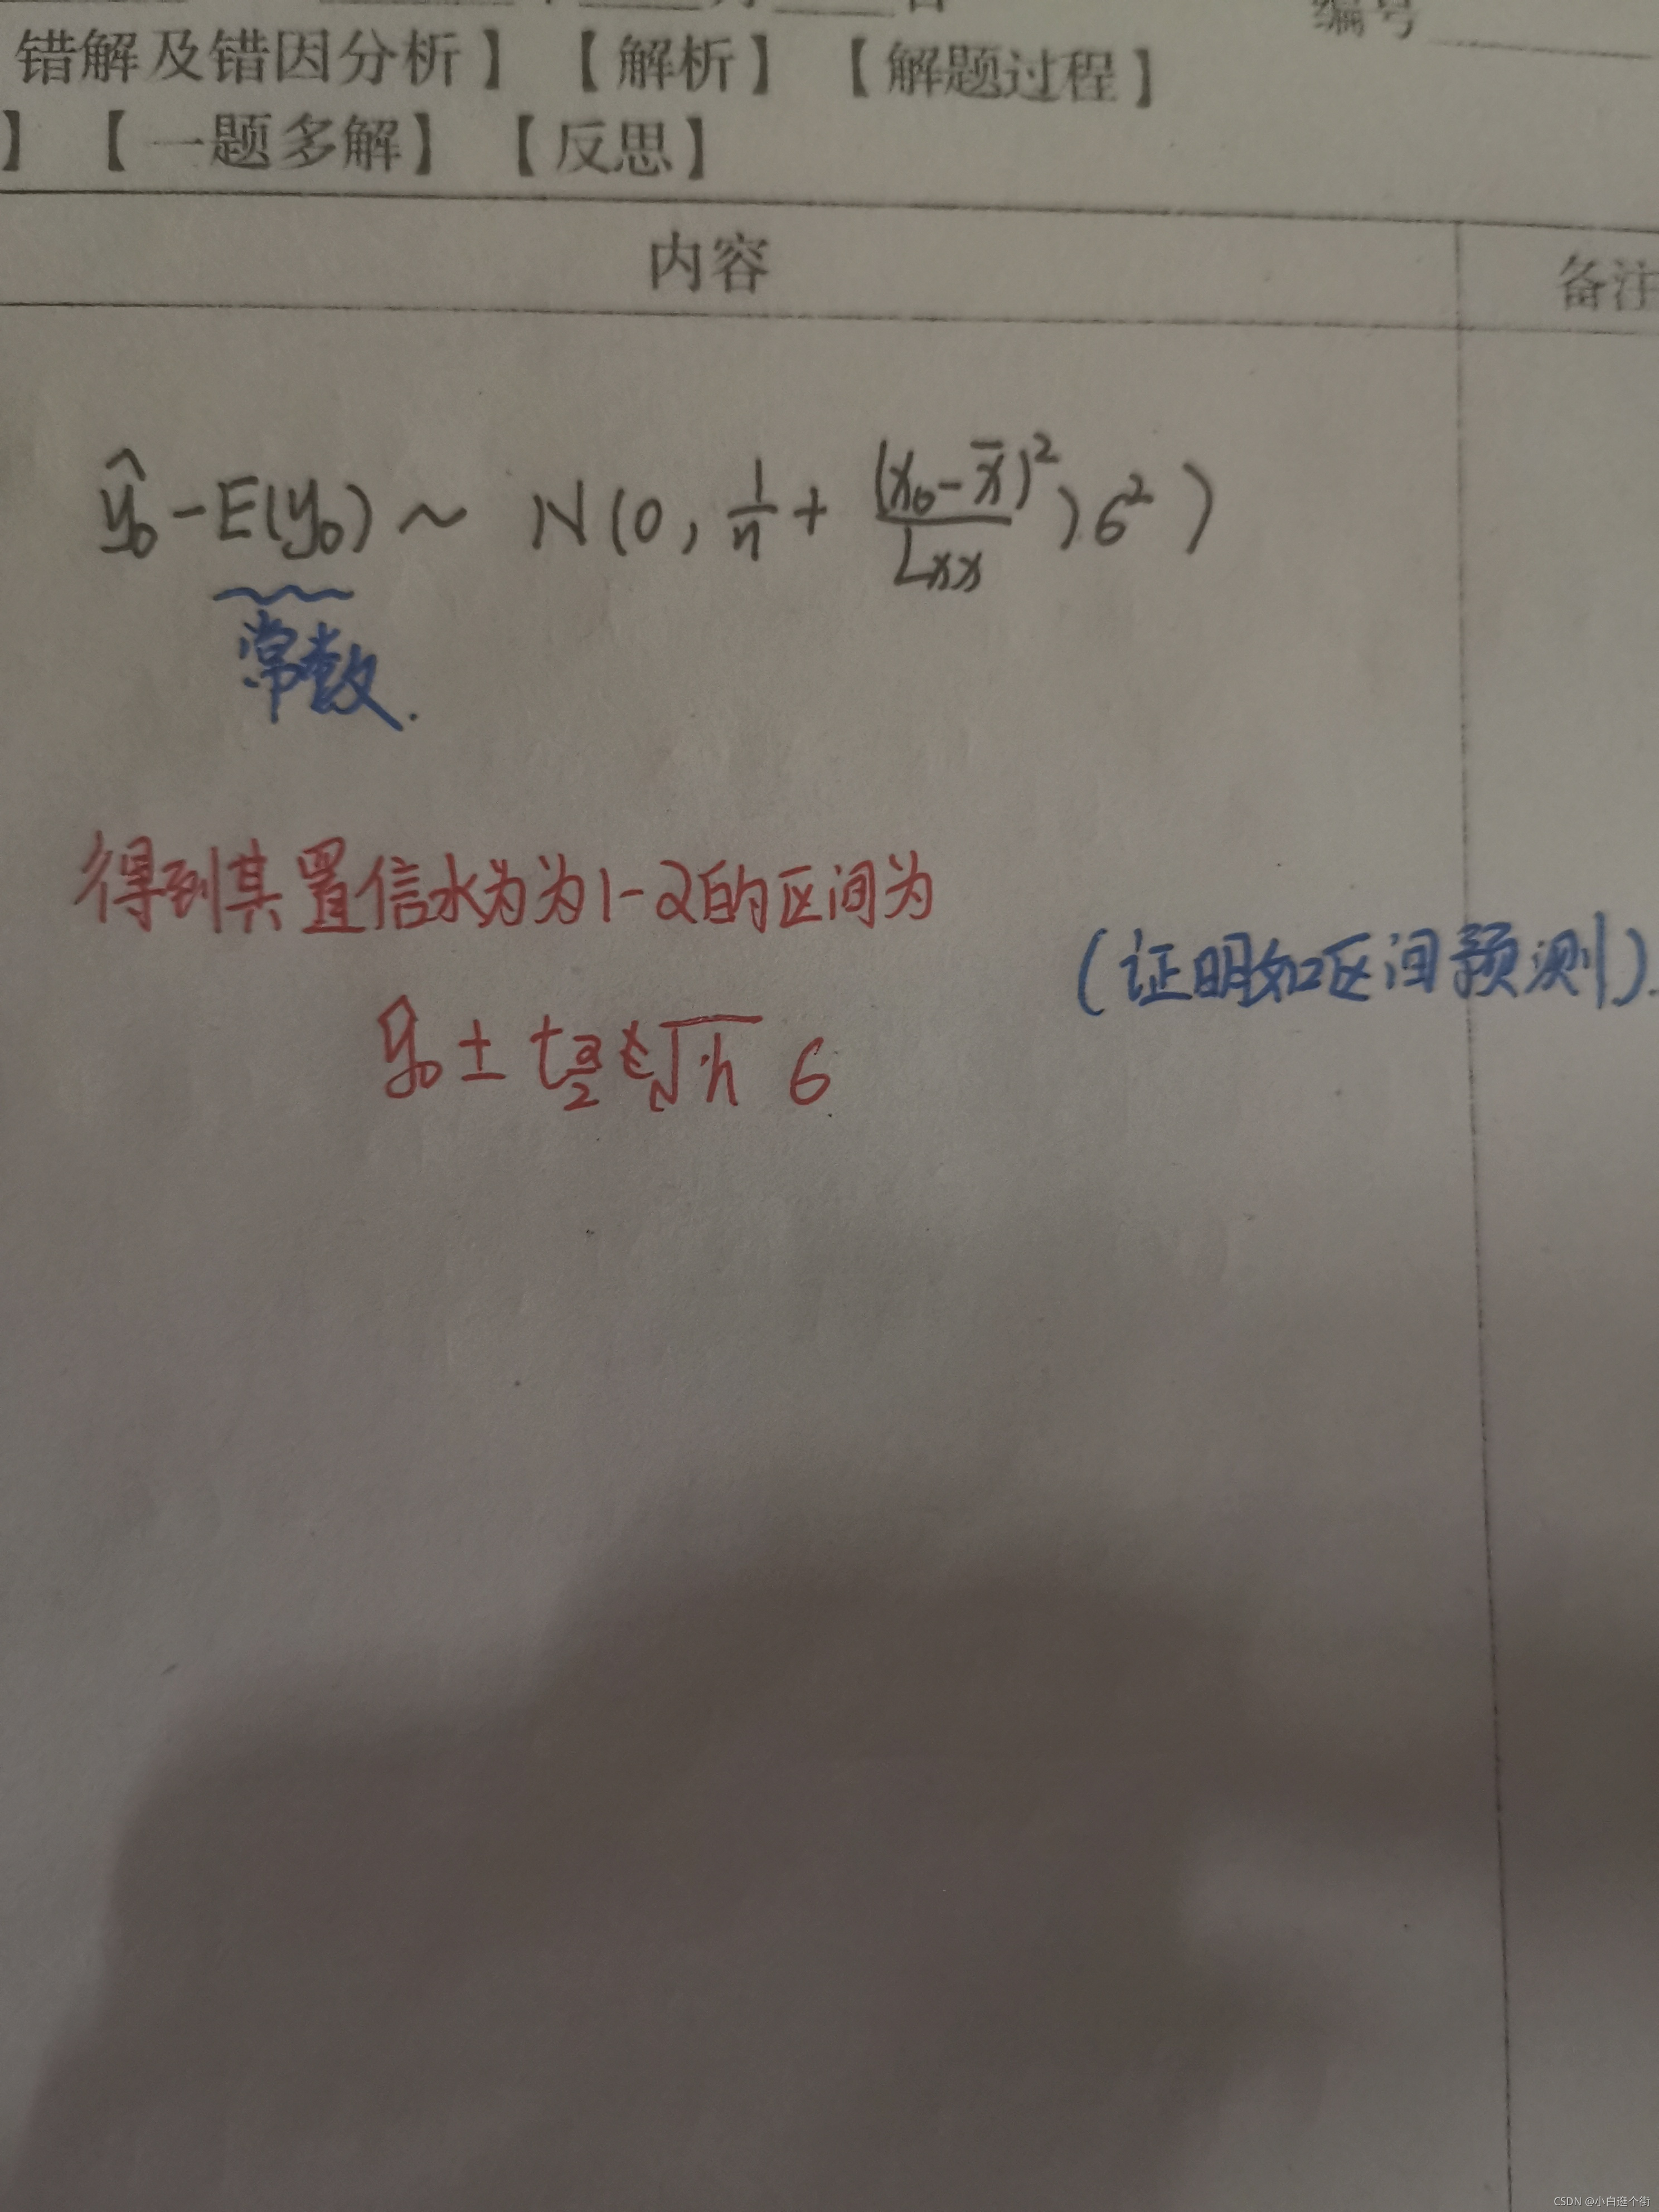 编号
错解及错因分析】 【解析】 【解题过程】
】 【一题多解】 【反思】
内容 备注
ŷ₀-E(y₀) ~ N(0, 1/n + (x₀-x̄)²/Lxx)σ²)
常数.
得到其置信水为为1-α的区间为
(证明如区间预测).
ŷ₀ ± t α/2 √h σ
CSDN @小白逛个街